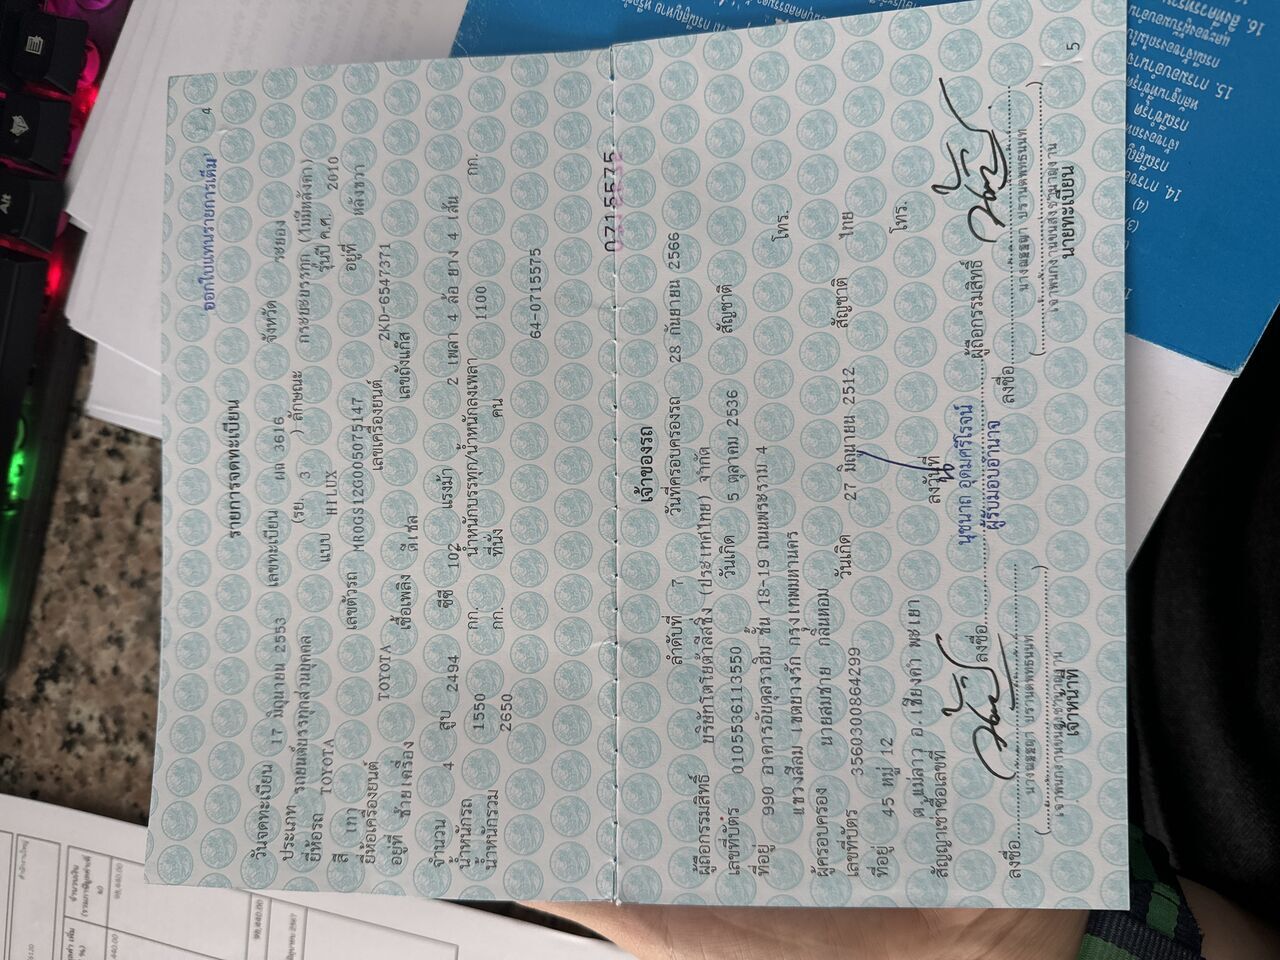 4
ออกใบแทนรายการเต็ม
รายการจดทะเบียน
วันจดทะเบียน 17 มิถุนายน 2553 เลขทะเบียน ผถ 3616 จังหวัด ระยอง
ประเภท รถยนต์บรรทุกส่วนบุคคล (รย. 3 ) ลักษณะ กระบะบรรทุก (ไม่มีหลังคา)
ยี่ห้อรถ TOYOTA แบบ HILUX รุ่นปี ค.ศ. 2010
สี เทา เลขตัวรถ MR0GS12G005075147 อยู่ที่ หลังขวา
ยี่ห้อเครื่องยนต์ TOYOTA เลขเครื่องยนต์ 2KD-6547371
อยู่ที่ ซ้ายเครื่อง เชื้อเพลิง ดีเซล เลขถังแก๊ส
จำนวน 4 สูบ 2494 ซีซี 102 แรงม้า 2 เพลา 4 ล้อ ยาง 4 เส้น
น้ำหนักรถ 1550 กก. น้ำหนักบรรทุก/น้ำหนักลงเพลา 1100 กก.
น้ำหนักรวม 2650 กก. ที่นั่ง คน
64-0715575
0715575
เจ้าของรถ
ลำดับที่ 7 วันที่ครอบครองรถ 28 กันยายน 2566
ผู้ถือกรรมสิทธิ์ บริษัทโตโยต้าลีสซิ่ง (ประเทศไทย) จำกัด
เลขที่บัตร 0105536113550 วันเกิด 5 ตุลาคม 2536 สัญชาติ
ที่อยู่ 990 อาคารอับดุลราฮิม ชั้น 18-19 ถนนพระราม 4
แขวงสีลม เขตบางรัก กรุงเทพมหานคร โทร.
ผู้ครอบครอง นายสมชาย กลิ่นหอม
เลขที่บัตร 3560300864299 วันเกิด 27 มิถุนายน 2512 สัญชาติ ไทย
ที่อยู่ 45 หมู่ 12
ต.แม่ลาว อ.เชียงคำ พะเยา โทร.
สัญญาเช่าซื้อเลขที่ ลงวันที่
นุชนาถ อุดมศรีโรจน์
ลงชื่อ ผู้ถือกรรมสิทธิ์
ผู้รับมอบอำนาจ
ลงชื่อ ลงชื่อ
เจ้าพนักงานขนส่งชำนาญงาน เจ้าพนักงานขนส่งชำนาญงาน
เจ้าหน้าที่ นายทะเบียน
5